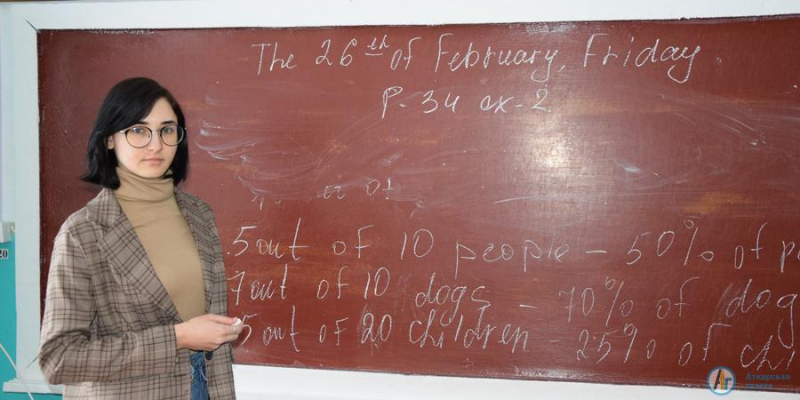 The 26th of February, Friday
P-34 ex-2
5 out of 10 people - 50% of p
7 out of 10 dogs - 70% of dog
5 out of 20 children - 25% of chi
20
Аткарская